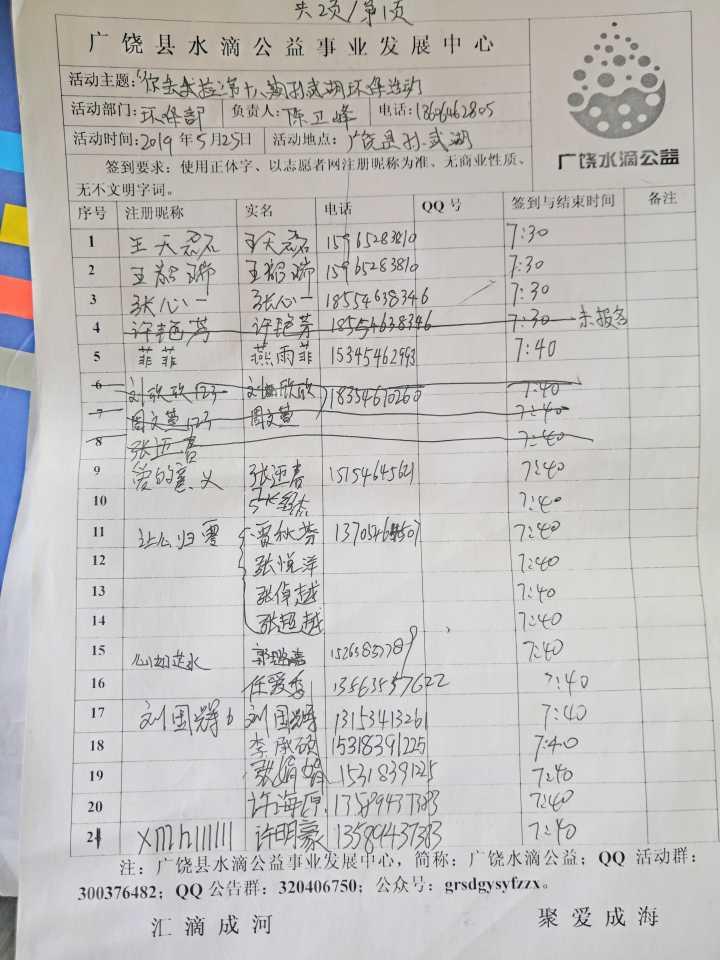 共2页/第1页
广饶县水滴公益事业发展中心
活动主题:"你丢我捡"第十八期孙武湖环保活动
活动部门:环保部 负责人:陈卫峰 电话:13606462805
活动时间:2019年5月25日 活动地点:广饶县孙武湖
广饶水滴公益
签到要求:使用正体字、以志愿者网注册昵称为准、无商业性质、
无不文明字词。
序号 注册昵称 实名 电话 QQ号 签到与结束时间 备注
1 王天君石 王天君石 15965283810 7:30
2 王 瑞 王 瑞 15965283810 7:30
3 张心一 张心一 18554638346 7:30
4 许艳芳 许艳芳 18554638346 7:30 未报名
5 菲菲 燕雨菲 15345462993 7:40
6 刘欣欣 刘欣欣 18354610260 7:40
7 周文萱 周文萱 7:40
8 张迎春 7:40
9 爱的意义 张迎春 15154645621 7:40
10 7:40
11 让心归零 贾秋芳 7:40
12 张悦洋 7:40
13 张倬越 7:40
14 张超越 7:40
15 心如止水 7:40
16 任爱香 13563557622 7:40
17 刘国辉6 刘国辉 13153413261 7:40
18 李成硕 15318391225 7:40
19 张娟娟 15318391225 7:40
20 许海原 13589437383 7:40
21 xmh11111 许明豪 13589437383 7:40
注:广饶县水滴公益事业发展中心,简称:广饶水滴公益;QQ 活动群:
300376482;QQ 公告群:320406750;公众号:grsdgysyfzzx。
汇滴成河 聚爱成海